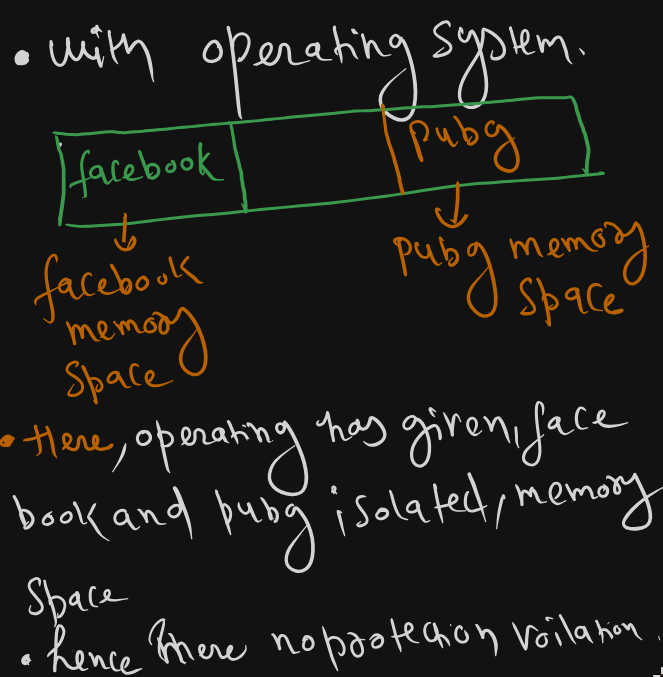 • with operating system.
facebook
pubg
facebook
memory
space
pubg memory
space
• Here, operating has given, face
book and pubg isolated, memory
space
• hence there no protection voilation.